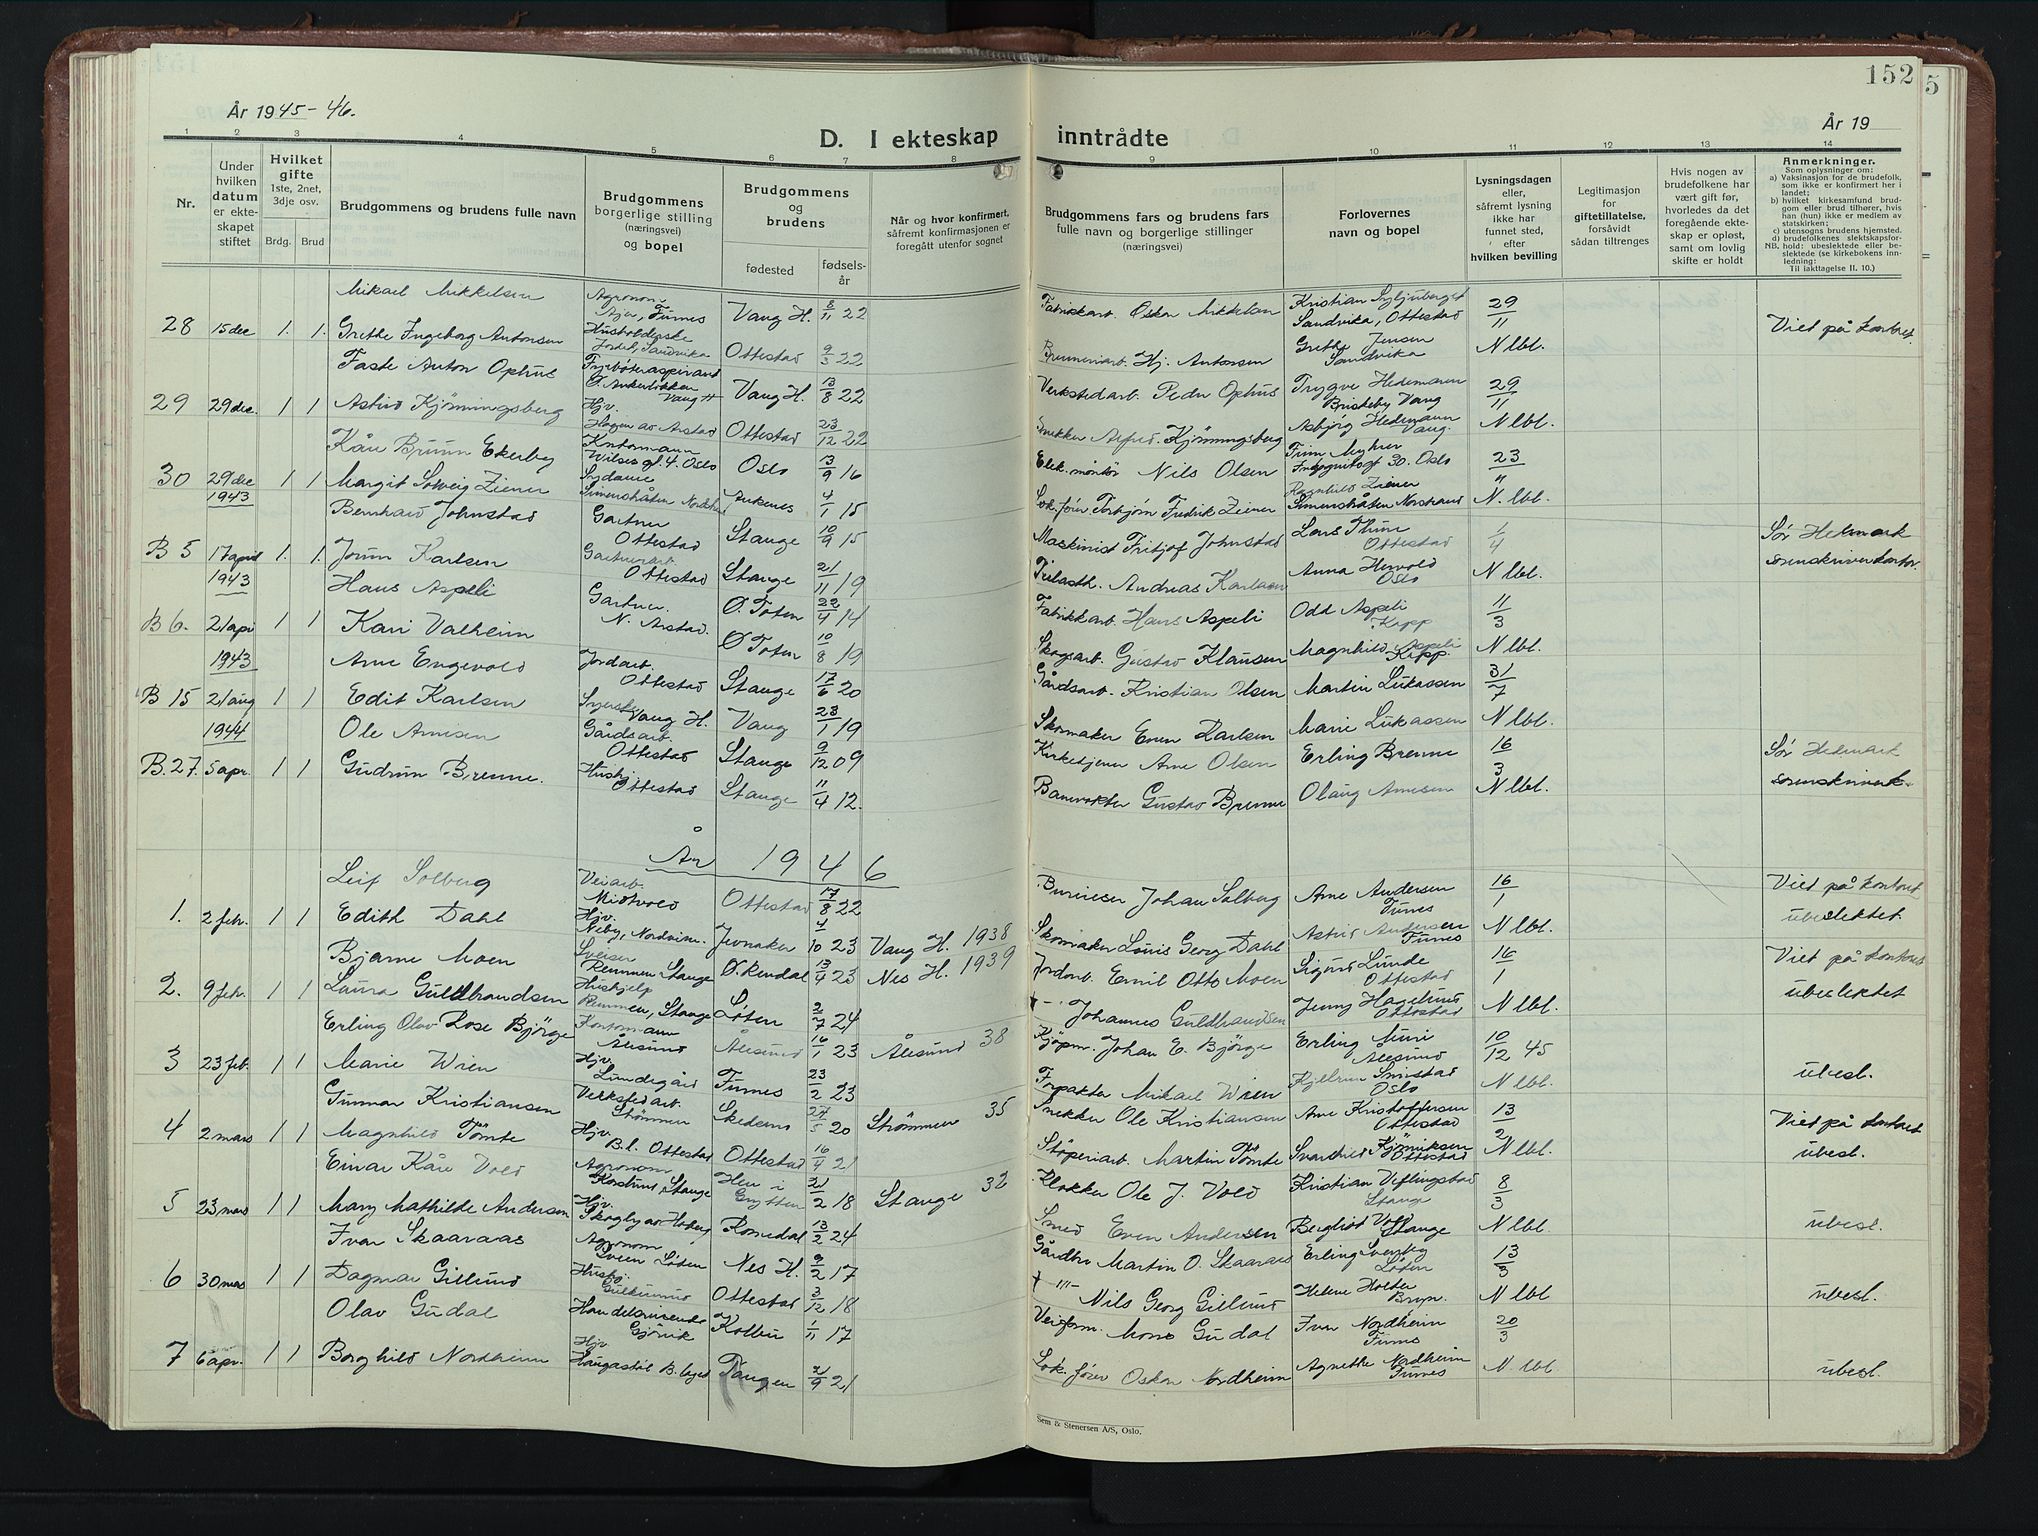 152
5
År 1945-46.
D. I ekteskap inntrådte
År 19
1 2 3 4 5 6 7 8 9 10 11 12 13 14
Nr.
Under hvilken datum er ekteskapet stiftet
Hvilket gifte 1ste, 2net, 3dje osv.
Brdg. Brud
Brudgommens og brudens fulle navn
Brudgommens borgerlige stilling (næringsvei) og bopel
Brudgommens og brudens
fødested
fødselsår
Når og hvor konfirmert, såfremt konfirmasjonen er foregått utenfor sognet
Brudgommens fars og brudens fars fulle navn og borgerlige stillinger (næringsvei)
Forlovernes navn og bopel
Lysningsdagen eller, såfremt lysning ikke har funnet sted, efter hvilken bevilling
Legitimasjon for giftetillatelse, forsåvidt sådan tiltrenges
Hvis nogen av brudefolkene har vært gift før, hvorledes da det foregående ekteskap er opløst, samt om lovlig skifte er holdt
Anmerkninger.
Som oplysninger om:
a) Vaksinasjon for de brudefolk, som ikke er konfirmert her i landet;
b) hvilket kirkesamfund brudgom eller brud tilhører, hvis han (hun) ikke er medlem av statskirken;
c) utensogns brudens hjemsted.
d) brudefolkenes slektskapsforhold: ubeslektede eller beslektede (se kirkebokens innledning:
NB.
Til iakttagelse II. 10.)
Mikael Mikkelsen Agronom Ajer, Furnes Vang H. 8/11 22 Fabrikkarb. Oskar Mikkelsen Kristian Sandvika, Ottestad 29/11
28 15 dec 1. 1. Grethe Ingeborg Antonsen Jordet, Sandvika Ottestad 9/3 22 Brenneriarb. Hj. Antonsen Grethe Jensen Sandvika N lbl. Viet på kontoret
Faste Anton Ophus Vang H Vang H. 13/8 22 Verkstedarb. Peder Ophus Trygve Hedemann Briskeby Vang 29/11
29 29 dec. 1 1 Astrid Kjönningsberg Hjv. Hagen av Arstad Ottestad 23/12 22 Snekker Alfred Kjönningsberg Asbjørg Hedemann Vang. N lbl.
Kåre Bruun Ekerby Kontormann Wilses gt. 4. Oslo Oslo 13/9 16 Elek. montör Nils Olsen Finn Myhrer Frognerto gt 30. Oslo 23/11
30 29 dec 1 1 Margit Solveig Ziener Sydame Simenstråten Nordstrand Ankenes 4/1 15 Lok. fører Torbjörn Fredrik Ziener Ragnhild Ziener Simenstråten Nordstrand N. lbl.
1943 Bernhard Johnstad Gartner Ottestad Stange 10/9 15 Maskinist Fritjof Johnstad Lars Thune Ottestad 1/4 Sør Hedmark
B 5 17 april 1. 1. Jorun Karlsen Gartnerarb. Ottestad Stange 21/11 19 Andreas Karlsen Anna Hervold Oslo N lbl. sorenskriverkontor.
1943 Hans Aspeli Gartner. N. Arstad. Ø. Toten 22/4 14 Fabrikkarb. Hans Aspeli Odd Aspeli Kapp 11/3
B 6. 21 apr 1 1 Kari Valheim Ø Toten 10/8 19 Skogsarb. Gustav Klausen Magnhild Aspeli Kapp. N lbl.
1943 Arne Engevold Jordarb. Ottestad Stange 17/6 20 Gårdsarb. Kristian Olsen Martin Lukassen 31/7
B 15 21 aug 1 1 Edit Karlsen Syerske Vang H. Vang 23/1 19 Skomaker Even Karlsen Marie Lukassen N lbl.
1944 Ole Arnesen Gårdsarb. Ottestad Stange 9/12 09 Kirketjener Arne Olsen Erling Brenne 16/3 Sør Hedmark
B. 27. 5 apr. 1 1 Gudrun Brenne. Hushj. Ottestad Stange 11/4 12. Banevokter Gustav Brenne Olaug Arnesen N lbl. sorenskriverk.
År 1946
Leif Solberg Veiarb. Midtvold Ottestad 17/8 22 Johan Solberg Arne Andersen Furnes 16/1 Viet på kontoret
1. 2 febr. 1 1 Edith Dahl Hjv. Neby, Nordvin. Jevnaker 4/10 23 Vang H. 1938 Skomaker Louis Georg Dahl Astrid Andersen Furnes N lbl. ubeslektet.
Bjarne Moen Sveiser Remmen, Stange Ø. Rendal 13/4 23 Nes H. 1939 Jordarb. Emil Otto Moen Sigurd Lunde Ottestad 16/1 Viet på kontoret
2. 9 febr. 1 1 Laura Guldbrandsen Hushjelp Remmen, Stange Löten 2/7 24 Johannes Guldbrandsen Jenny Hagelund Ottestad N lbl. ubeslektet
Erling Olav Rose Bjørge Kontormann Ålesund Ålesund 16/1 23 Ålesund 38 Kjöpm. Johan E. Bjørge Erling Muri Ålesund 10/12 45
3 23 feb. 1 1 Marie Wien Hjv. Lundegård Furnes 23/2 23 Forpakter Mikael Wien Kjellrun Smestad Oslo N lbl. ubesl.
Gunnar Kristiansen Verkstedarb. Strömmen Skedsmo 27/5 20 Strömmen 35 Snekker Ole Kristiansen Arne Kristoffersen Ottestad 13/2 Viet på kontoret
4 2 mars 1 1 Magnhild Tömte Hjv. B.l. Ottestad Ottestad 16/4 21 Stöperiarb. Martin Tömte Svanhild Ottestad N lbl. ubesl.
Einar Kåre Vold Agronom Stange Hen i Grytten 21/2 18 Stange 32 Klokker Ole J. Vold Kristian Veflingstad Stange 8/3
5 23 mars 1 1 Mary Mathilde Andersen Hjv. Romedal 13/2 24 Smed Even Andersen Bergliot Vold Stange N lbl. ubesl.
Ivar Skaaraas Agronom Sveen Löten Nes H. 9/2 17 Gårdbr Martin O. Skaaraas Erling Sverby Löten 13/3
6 30 mars 1 1 Dagmar Gillund Hushj. Ottestad 3/12 18 Nils Georg Gillund Helene Holter Bryn. N lbl ubesl.
Olav Gudal Handelsreisende Gjövik Kolbu 1/11 17 Veiform. Mons Gudal Ivar Nordheim Furnes 20/3
7 6 apr. 1 1 Borghild Nordheim Hjv Haugastöl B. Tangen 2/9 21 Lok. fører Oskar Nordheim Agnethe Nordheim Furnes N. lbl ubesl.
Sem & Stenersen A/S, Oslo.